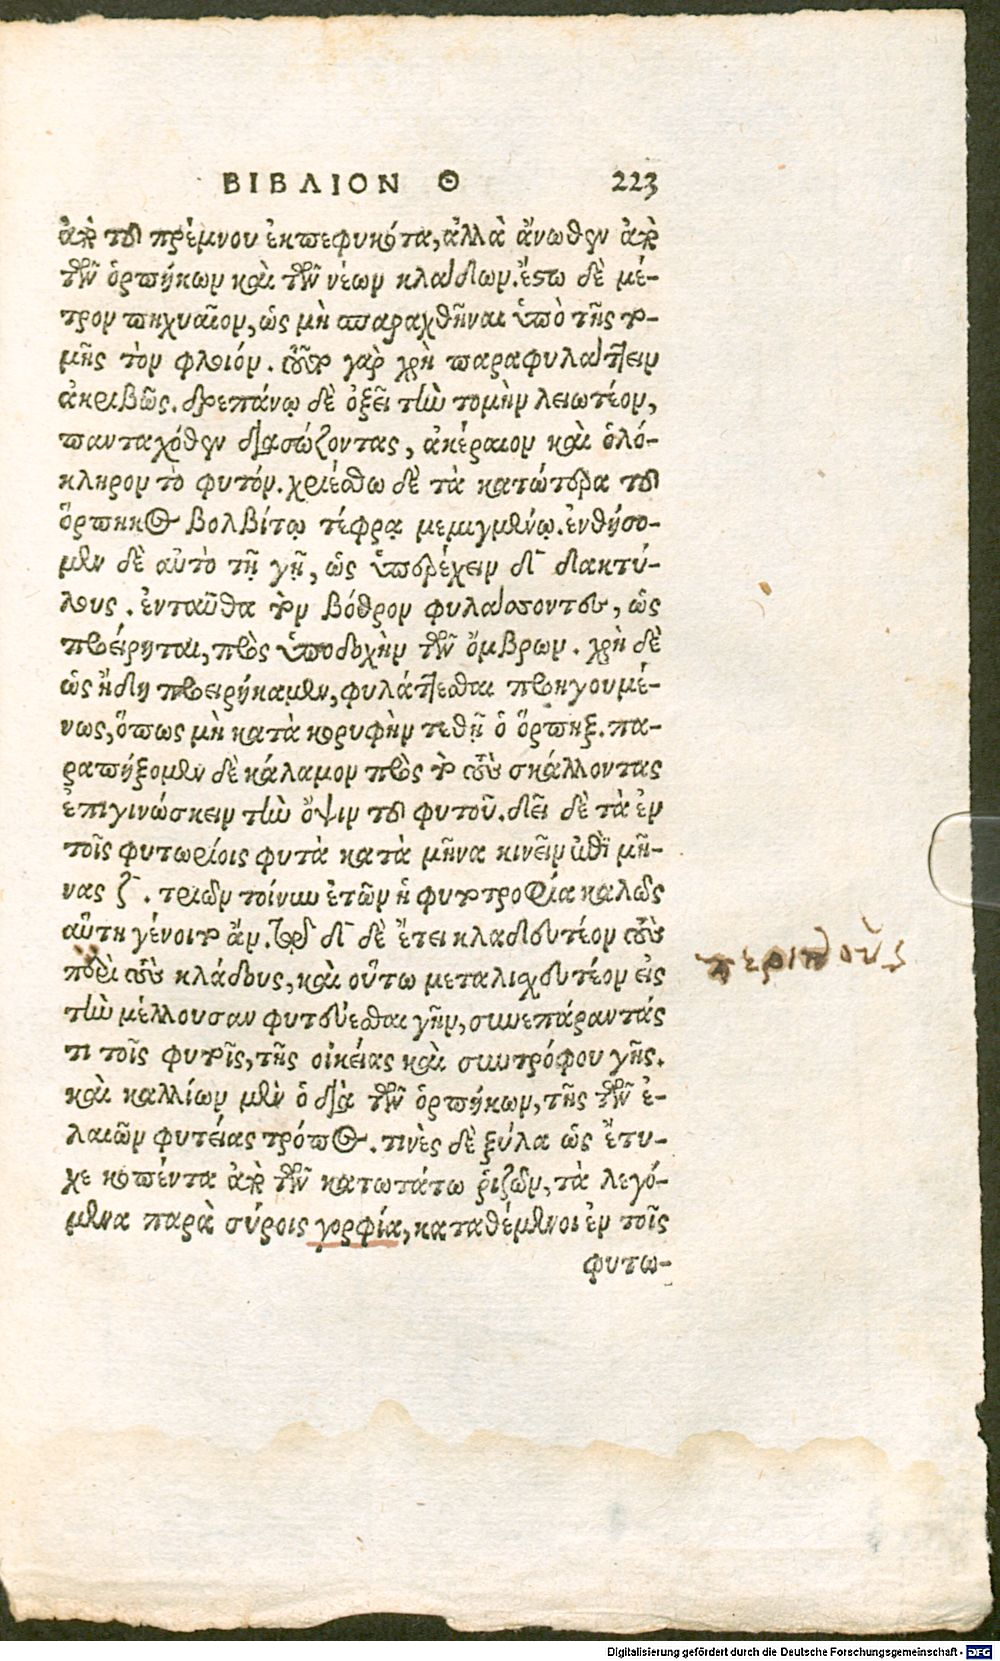 ΒΙΒΛΙΟΝ Θ 223
ἀπὸ τοῦ πρέμνου ἐκπεφυκότα, ἀλλὰ ἄνωθεν ἀπὸ
τῶν ὁρπήκων καὶ τῶν νέων κλαδίων. ἔστω δὲ μέ-
τρον πηχυαῖον, ὡς μὴ σπαραχθῆναι ὑπὸ τῆς το-
μῆς τὸν φλοιόν. τοῦτο γὰρ χρὴ παραφυλάττειν
ἀκριβῶς. δρεπάνῳ δὲ ὀξεῖ τὴν τομὴν λειωτέον,
πανταχόθεν διασώζοντας, ἀκέραιον καὶ ὁλό-
κληρον τὸ φυτόν. χριέσθω δὲ τὰ κατώτερα τοῦ
ὅρπηκος βολβίτῳ τέφρᾳ μεμιγμένῳ. ἐνθήσο-
μεν δὲ αὐτὸ τῇ γῇ, ὡς ὑπερέχειν δ̄ δακτύ-
λους. ἐνταῦθα τὸν βόθρον φυλάσσοντες, ὡς
προείρηται, πρὸς ὑποδοχὴν τῶν ὄμβρων. χρὴ δὲ
ὡς ἤδη προειρήκαμεν, φυλάττεσθαι προηγουμέ-
νως, ὅπως μὴ κατὰ κορυφὴν τεθῇ ὁ ὅρπηξ. πα-
ραπήξομεν δὲ κάλαμον πρὸς τὸ τοὺς σκάλλοντας
ἐπιγινώσκειν τὴν ὄψιν τοῦ φυτοῦ. δεῖ δὲ τὰ ἐν
τοῖς φυτωρίοις φυτὰ κατὰ μῆνα κινεῖν ἐπὶ μῆ-
νας ζ̄. τριῶν τοίνυν ἐτῶν ἡ φυτοτροφία καλῶς
αὕτη γένοιτο ἄν. τῷ δ̄ δὲ ἔτει κλαδευτέον τοὺς
περὶ τοὺς κλάδους, καὶ οὕτω μεταλιχδυτέον εἰς
τὴν μέλλουσαν φυτεύεσθαι γῆν, συνεπάραντάς
τι τοῖς φυτοῖς, τῆς οἰκείας καὶ συντρόφου γῆς.
καὶ καλλίων μὲν ὁ διὰ τῶν ὁρπήκων, τῆς τῶν ἐ-
λαιῶν φυτείας τρόπος. τινὲς δὲ ξύλα ὡς ἔτυ-
χε κοπέντα ἀπὸ τῶν κατωτάτω ῥιζῶν, τὰ λεγό-
μενα παρὰ σύροις γορφία, καταθέμενοι ἐν τοῖς
φυτω-